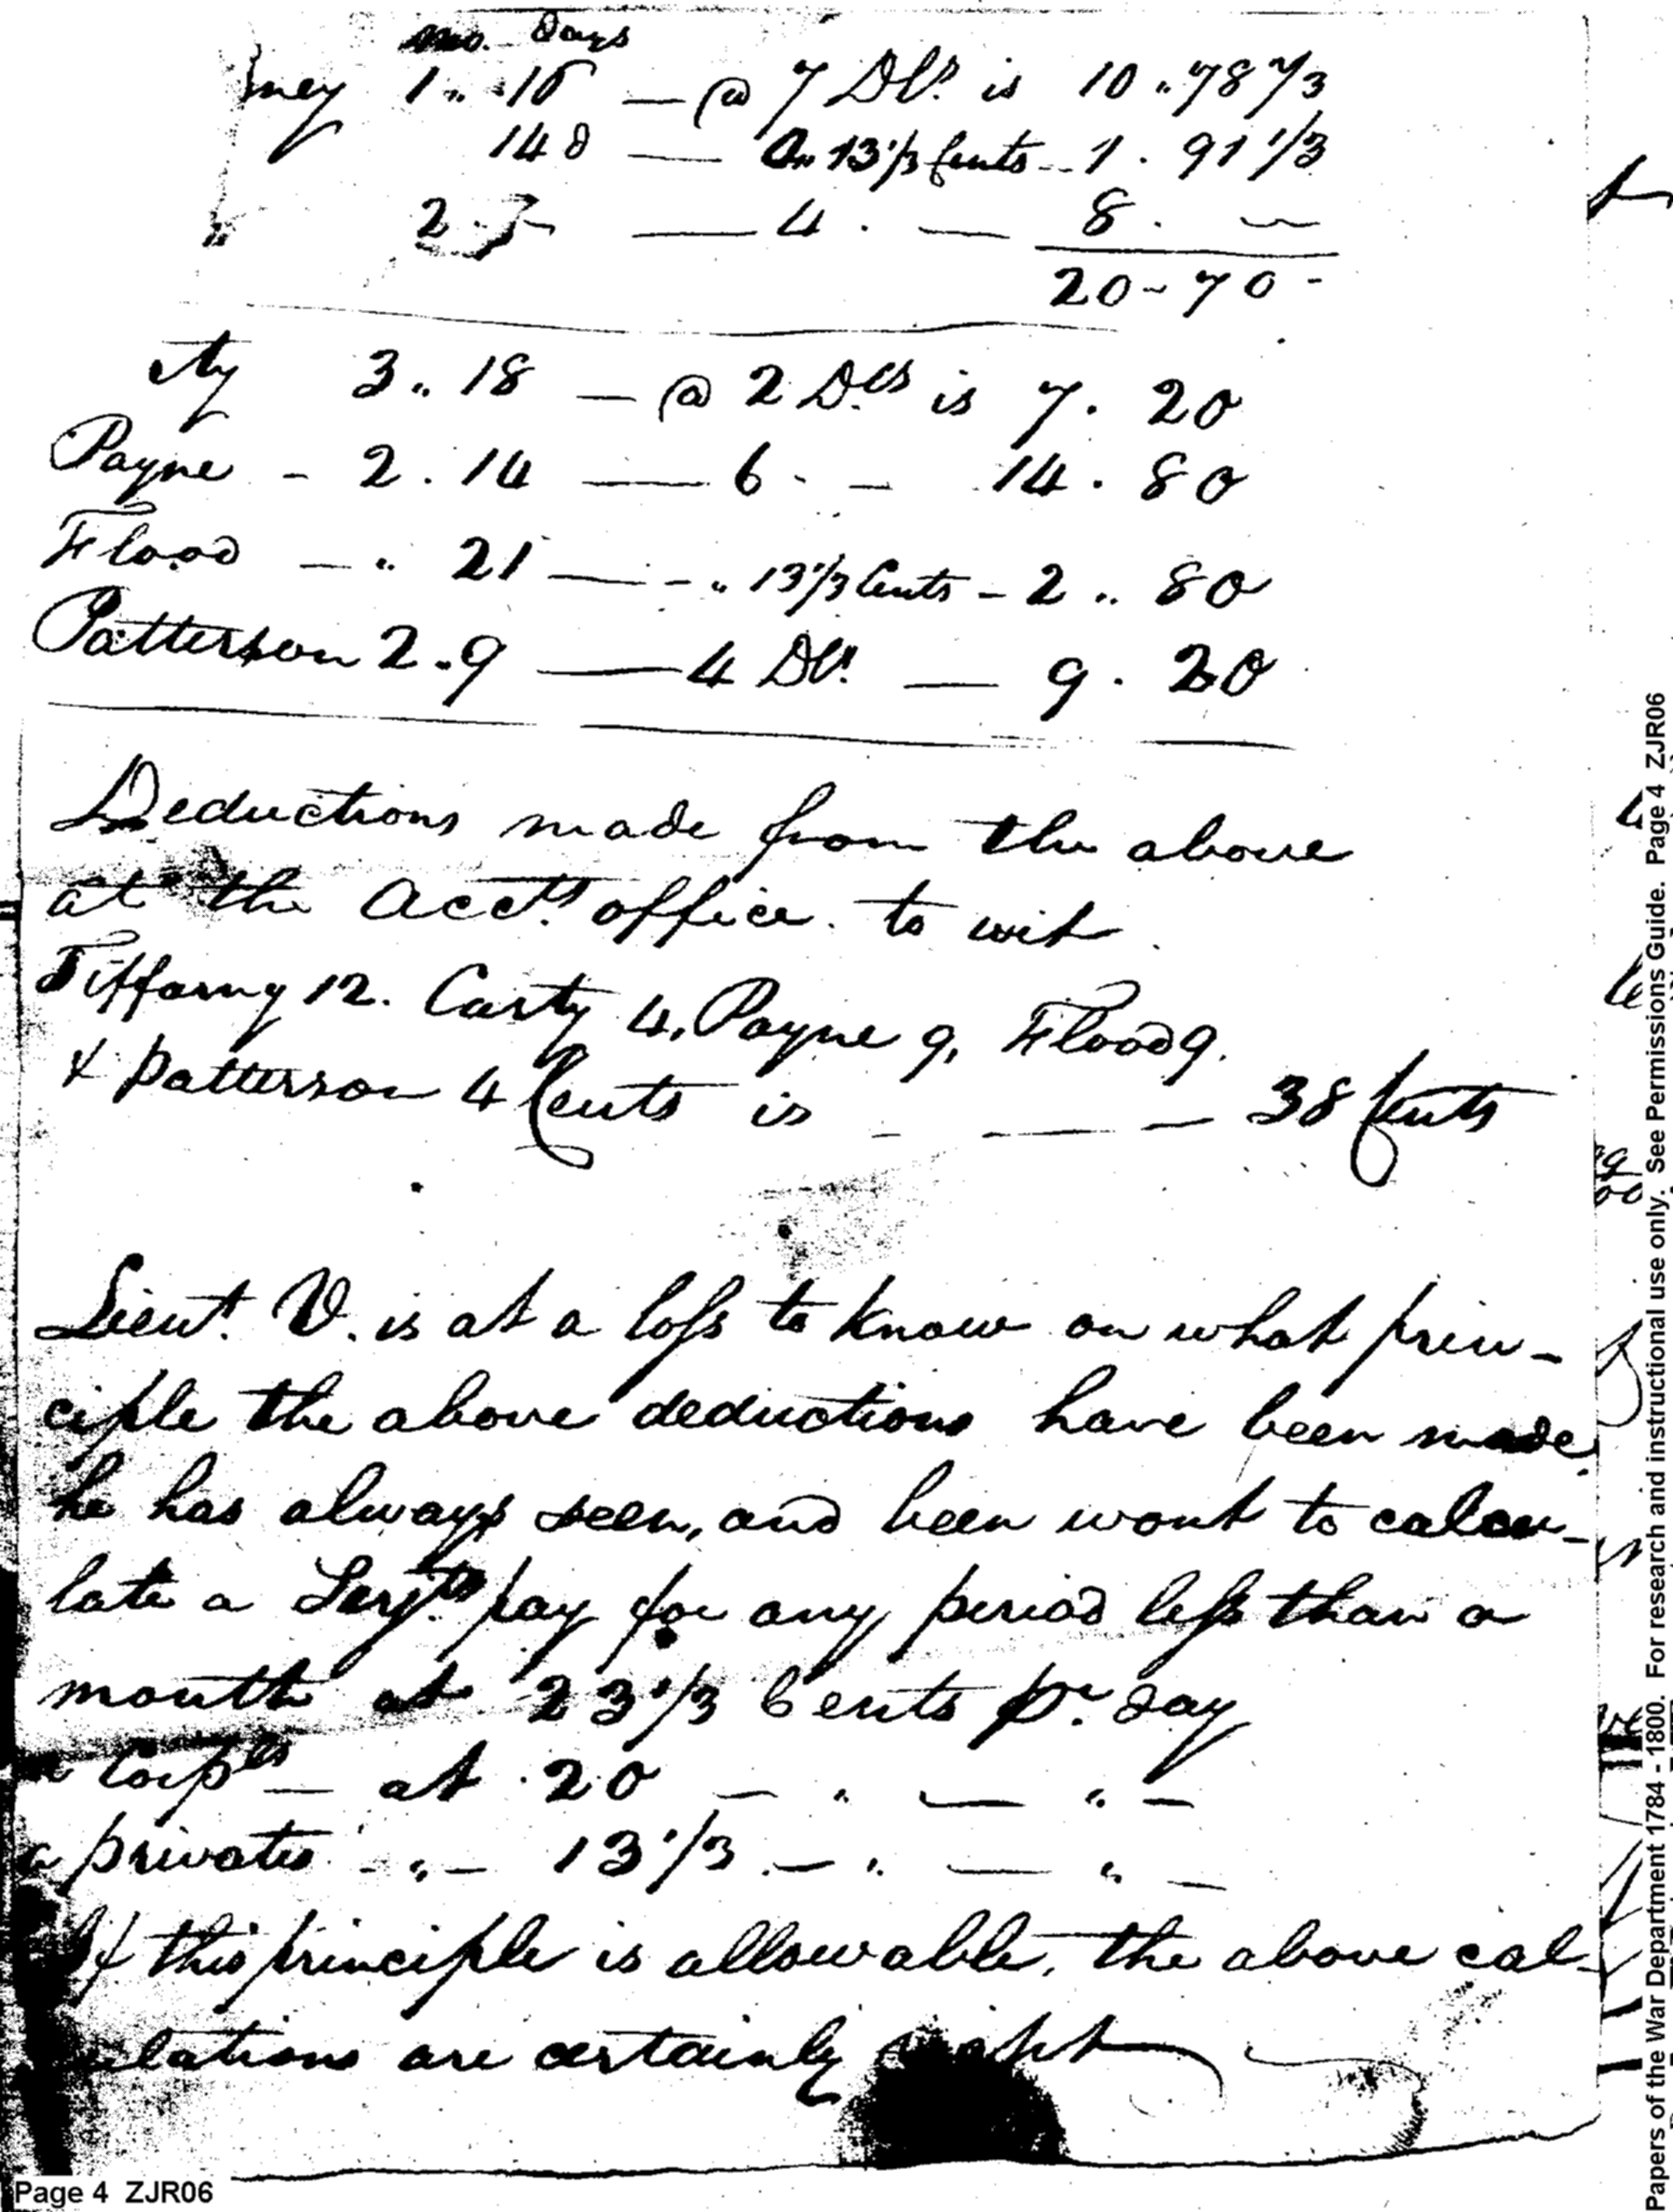 mo. Days
1 „ 16 — @ 7 Dlrs is 10 „ 78 2/3
148 — a 13 1/3 Cents -- 1 . 91 1/3
" 2 . — 4 . — 8 . ~
20 ~ 70 -
rty 3 „ 18 — @ 2 Dlls is 7 . 20
Payne - 2 . 14 — 6 . — 14 . 80
Flood — „ 21 — - „ 13 1/3 Cents - 2 „ 80
Patterson 2 . 9 — 4 Dlls. — 9 . 20
Deductions made from the above
at the Accts. office. to wit
Tiffany 12. Carty 4, Payne 9, Flood 9.
& Patterson 4 Cents is - - - - 38 Cents
Lieut. V. is at a loss to know on what prin-
ciple the above deductions have been made.
he has always seen, and been wont to calcu-
late a Serjts. pay for any period less than a
month at 23 1/3 Cents pr. day
Corpls — at 20 — „ — „ —
a privates - „ - 13 1/3 — „ — „ —
If this principle is allowable, the above cal-
ulations are certainly right
Page 4 ZJR06
Papers of the War Department 1784 - 1800. For research and instructional use only. See Permissions Guide. Page 4 ZJR06